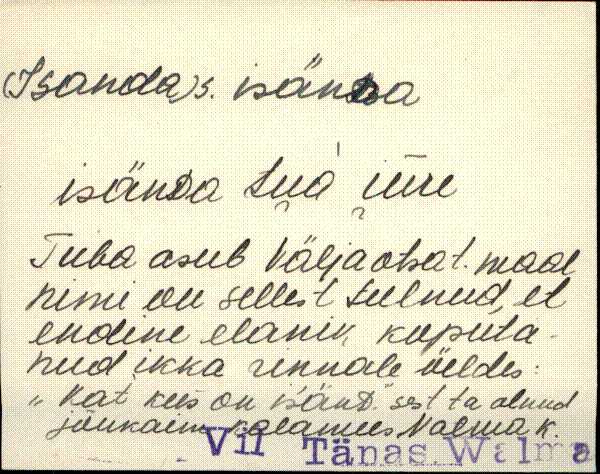 (Isanda) s. isänDa
isänDa tuá iure
Tuba asub Väljaotsat. maal
nimi on sellest tulnud, et
endine elanik koputa-
nud ikka rinnale üeldes:
"Kat kes on isänD" sest ta olnud
jõukaim kalamees Nalma k.
Vil Tänas. Walma